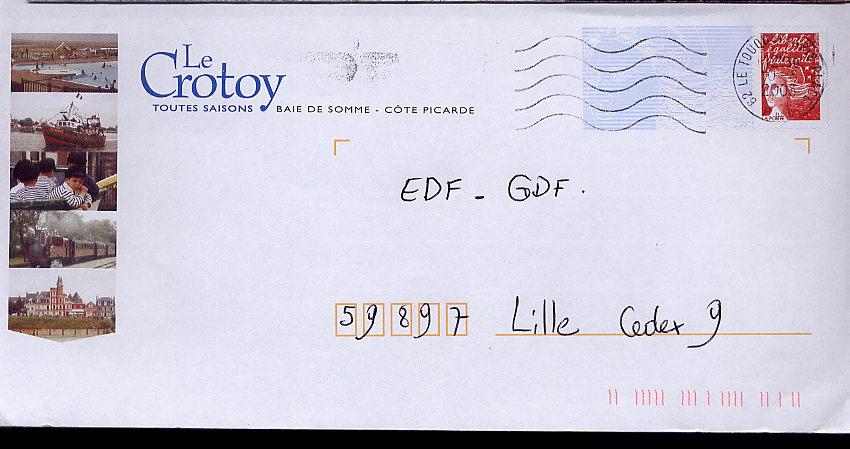 Le
Crotoy
TOUTES SAISONS BAIE DE SOMME - CÔTE PICARDE
Liberté
égalité
fraternité
62 LE TOUQ
EDF - GDF.
59897 Lille Cedex 9